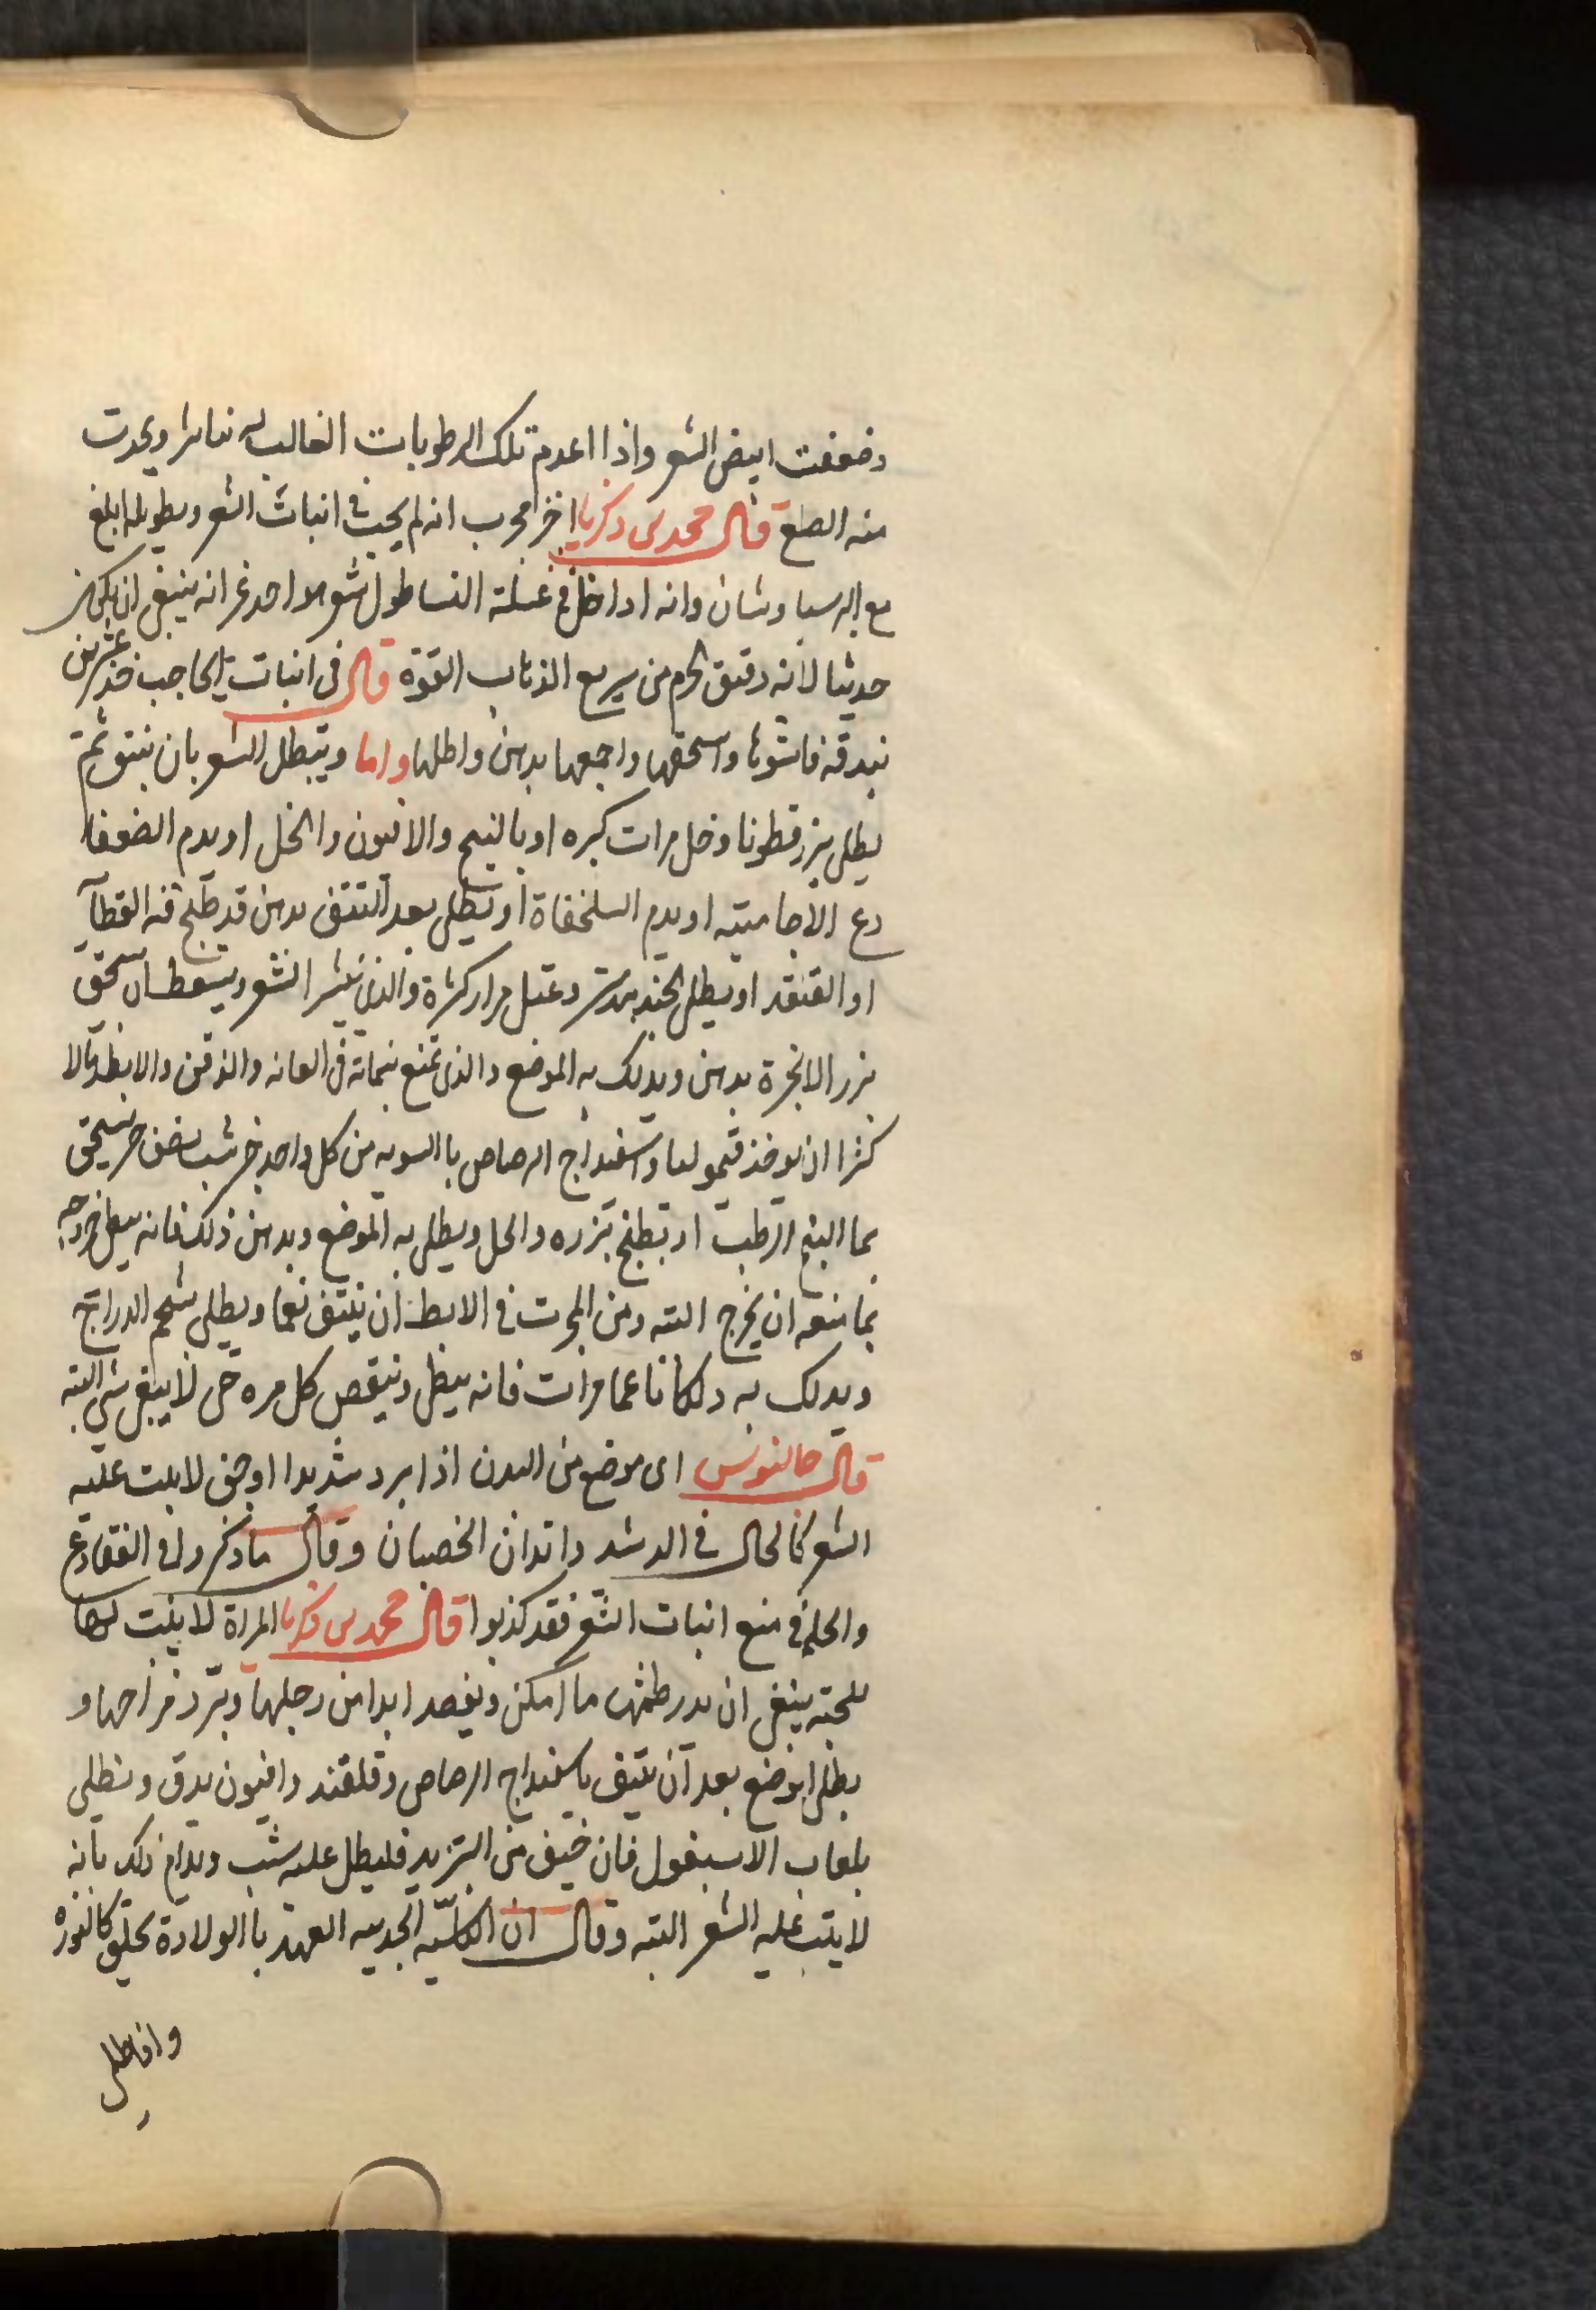 وضعفت ابيض الشعر واذا اعدم تلك الرطوبات الغالب له تناثرا ويحدث
منه الصلع قال محمد بن زكريا اخر مجرب انه لم يجب في انبات الشعر وبطويله ابلغ
مع البرسياوشان وانه اذا في غسلة النسا طول شعر انه ينبغي ان يكن
حديثا لانه دقيق الجرم من سريع الذهاب القوة قال في انبات الحاجب خذ عشرين
بندقه فاشوها واسحقها واجمعها بدهن واطلها واما ويتبطل الشعر بان ينتف ثم
يطلى ببزر قطونا وخل مرات كبره او بالبنج والافيون والخل او بدم الضفا
دع الاجاميته او بدم السلحفاة او يطلى بعد النتف بدهن قد طبخ فيه القطا
او القنفد او يطلى مرار كثرة والذي ينثر الشعر ويسقط ان سحق
بزر الانجرة بدهن ويدلك به الموضع والذى تمنع نباته فى العانه والذقن والابط
كثرا ان يوخذ قيموليا واسفيداج الرصاص بالسويه من كل واحد جز شب نصف جز يسحق
بما البنج الرطب او بطبخ بزره والخل ويطلى به الموضع وبدهن ذلك فانه خروجه
بما منعه ان يخرج البته ومن المجرب في الابط ان ينتف نعما ويطلى بشحم الدراريح
ويدلك به دلكا ناعما مرات فانه يبطل وينقص كل مره حتى لا يبقى شي البته
قال جالنوس اى موضع من البدن اذا برد شديدا او جفف لا ينبت عليه
الشعر كالحال في الدشبد وابدان الخصيان وقال ما ذكروا في الضفادع
والحلم في منع انبات الشعر فقد كذبوا قال محمد بن زكريا المراة لا ينبت لها
لحيه ينبغي ان يدر طمثها ما امكن ويفصد ابدا من رجلها ويبرد مزاجها و
يطلى الموضع بعد ان ينتف باسفيداج الرصاص وقلقند وافيون يدق ويطلى
بلعاب الاسبغول فان خيف من التزيد فليطل عليه شب ويدام ذلك بانه
لا ينبت عليه الشعر البته وقال ان الكلسيه الحديثه العهد باالولادة تحلق كالنوره
وان طلى